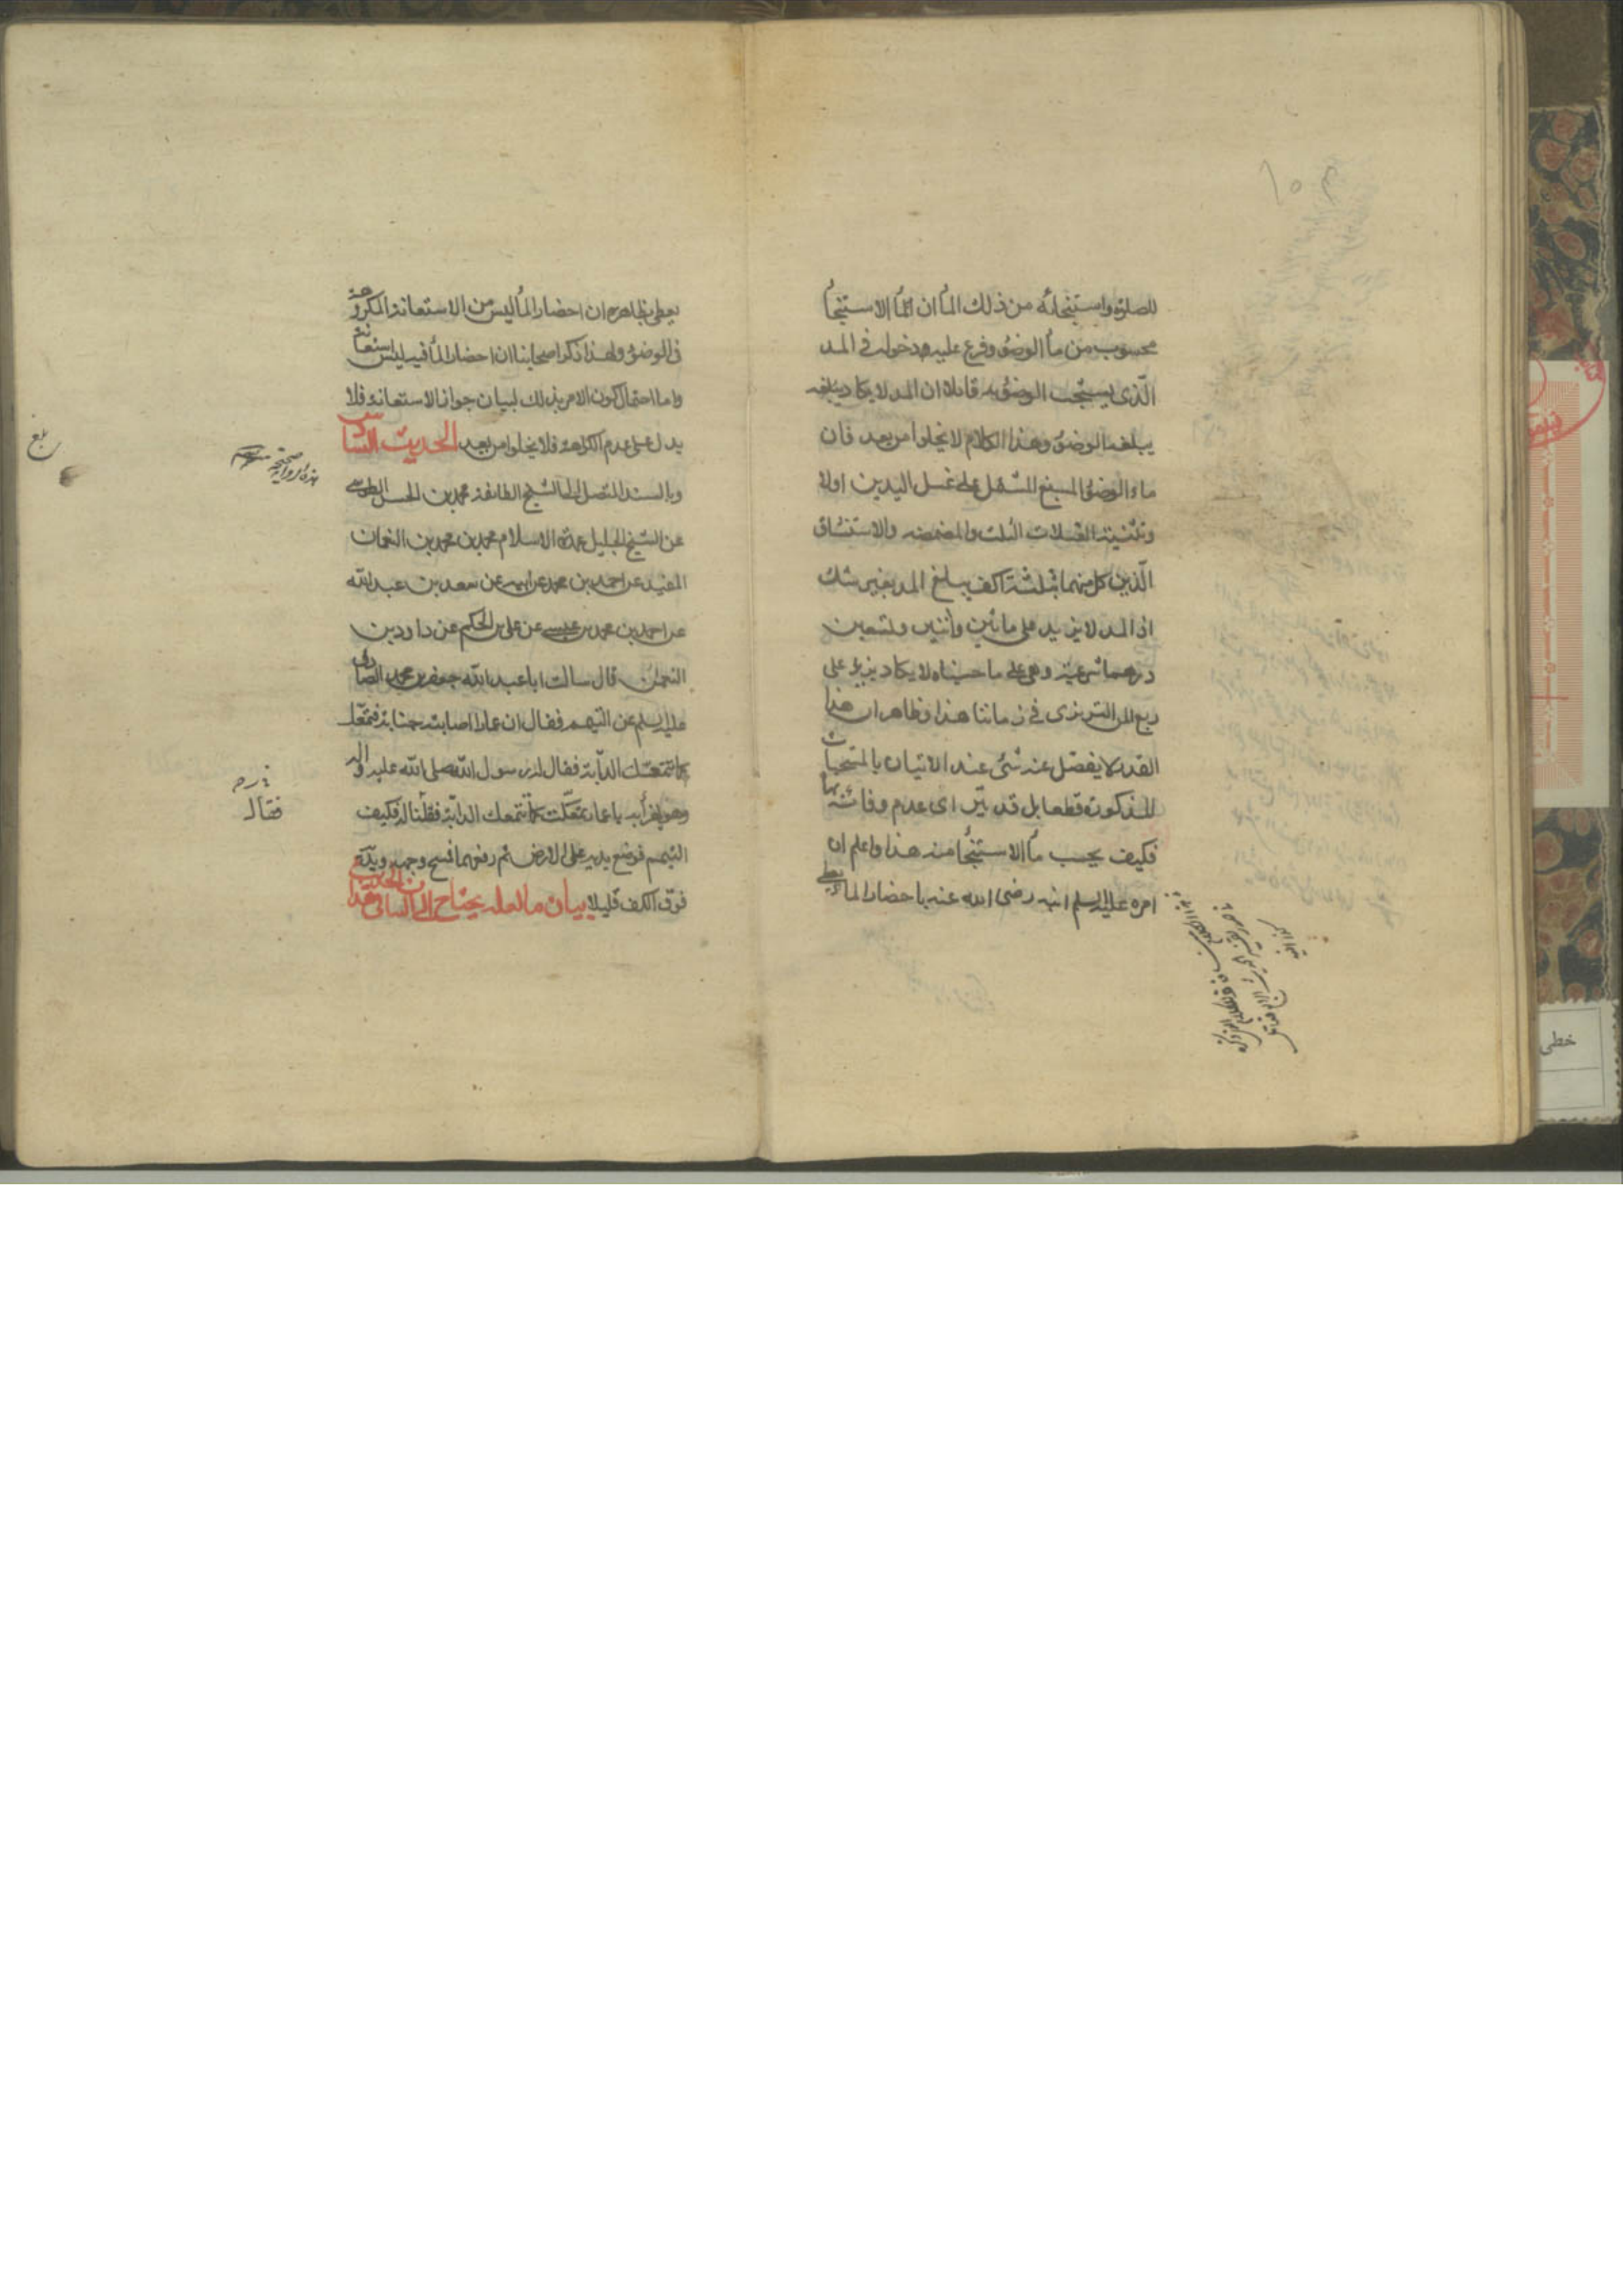 للصلوة واستنجائه من ذلك المأ ان المأ الاستنجأ
محسوب من مأ الوضوء وفرع عليه دخوله في المد
الّذى يستحب الوضوء به قائلا ان المد لا يكاد يبلغه
يبلغه الوضوء وهذا الكلام لا يخلوا من بعد فان
ماء الوضوء المسبغ المشتمل على غسل اليدين اولا
وتثنية الغسلات الثلث والمضمضه والاستنشاق
الّذين كل منهما بثلثة اكف يبلغ المد بغير شك
اذ المد لا يزيد على مائتين واثنين وتسعين
درهما شرعية وهى على ما حسبناه لا يكاد يزيد على
ربع المن التبريزى فى زماننا هذا وظاهر ان هذا
القدر لا يفضل عنه شئ عند الاتيان بالمستحبات
المذكورة قطعا بل قد يترااى عدم وفائه بها
فكيف يحسب مأ الاستنجأ منه هذا واعلم ان
امره عليه السلم ابنه رضى الله عنه باحضار المأ يعطى
يعطى بظاهره ان احضار المأ ليس من الاستعانة المكروهة
فى الوضوء ولهذا ذكر اصحابنا ان احضار المأ فيه ليس استعانة
واما احتمال كون الامر بذلك لبيان جواز الاستعانة فلا
يدل على عدم الكراهة فلا يخلوا من بعد الحديث السادس
وبالسند المتصل الى الشيخ الطائفة محمد بن الحسن الطوسى
عن الشيخ الجليل عمدة الاسلام محمد بن محمد بن النعمان
المفيد عن احمد بن محمد عن ابيه عن سعد بن عبد الله
عن احمد بن محمد بن عيسى عن على بن الحكم عن داود بن
النعمان قال سالت ابا عبد الله جعفر بن محمد الصادق
عليه السلم عن التيمم فقال ان عمارا اصابته جنابة فتمعّك
كما تتمعّك الدآبة فقال له رسول الله صلى الله عليه واله
وهو يهزأ به يا عمار تمعّكت كما تتمعك الدآبة فقلنا له فكيف
التيمم فوضع يديه على الارض ثم رفعهما فمسح وجهه ويديه
فوق الكف قليلا بيان ما لعله يحتاج الى البيان فى هذا الحديث
هذه الرواية صحيحة
بلغ
فقال